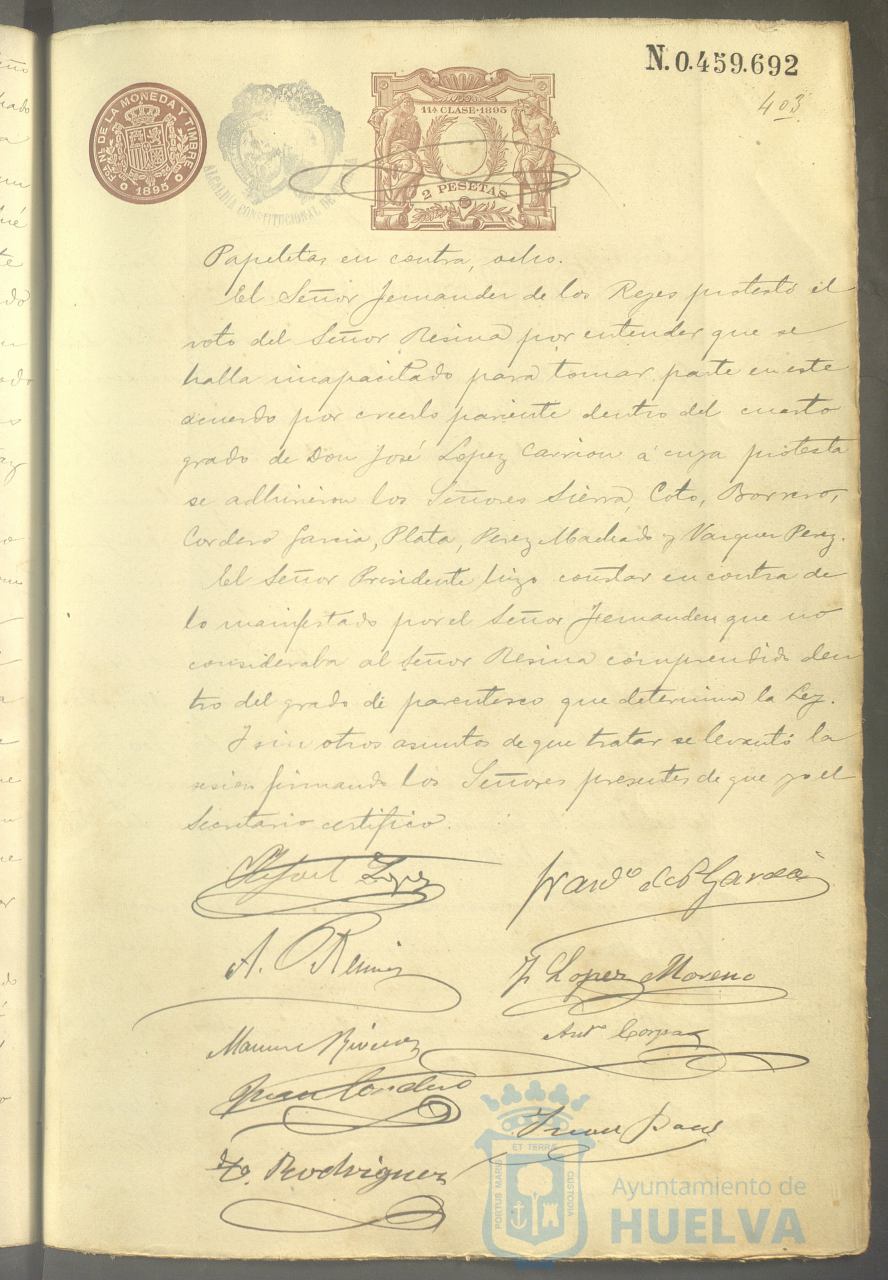 N. 0.459.692
403
Fca. Nl. DE LA MONEDA Y TIMBRE
1895
ALCALDIA CONSTITUCIONAL DE
11ª CLASE · 1895
2 PESETAS
Papeletas en contra, ocho.
El Señor Fernandez de los Reyes protestó el
voto del Señor Resina por entender que se
halla incapacitado para tomar parte en este
acuerdo por creerlo pariente dentro del cuarto
grado de Don José Lopez Carrion á cuya protesta
se adhirieron los Señores Sierra, Coto, Borrero,
Cordero Garcia, Plata, Perez Machado y Vazquez Perez.
El Señor Presidente hizo constar en contra de
lo manifestado por el Señor Fernandez que no
consideraba al Señor Resina comprendido den
tro del grado de parentesco que determina la Ley.
Y sin otros asuntos de que tratar se levantó la
sesion firmando los Señores presentes de que yo el
Secretario certifico.
Rafael Lopez
Garcia
A. Resina
F. Lopez Moreno
Antº
Juan Cordero
Rodriguez
PORTUS MARIS ET TERRAE CUSTODIA
Ayuntamiento de
HUELVA